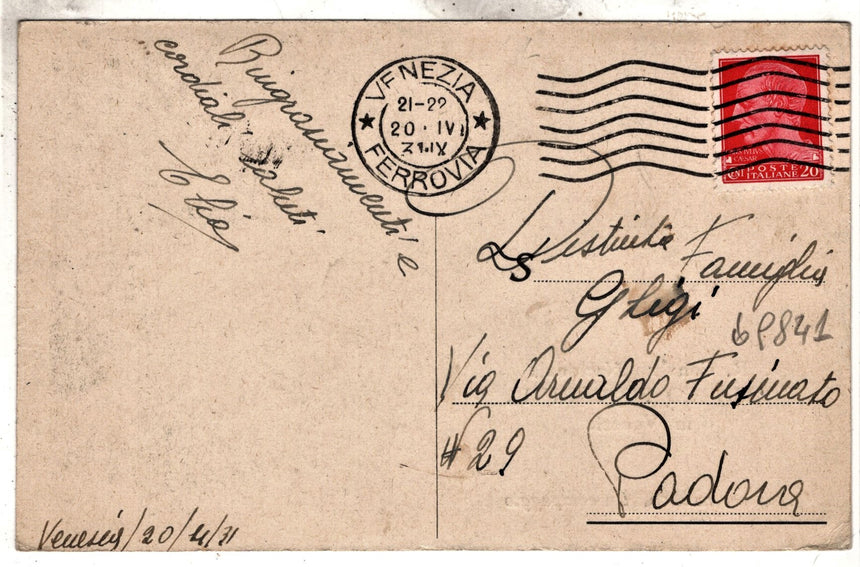 Ringraziamenti e
cordiali saluti
Venezia/20/4/31
VENEZIA
21-22
20 · IV
31·IX
FERROVIA
IVLIVS
CAESAR
POSTE
ITALIANE 20
Distinta
Famiglia
Ghigi
69841
Via Arnaldo Fusinato
# 29
Padova